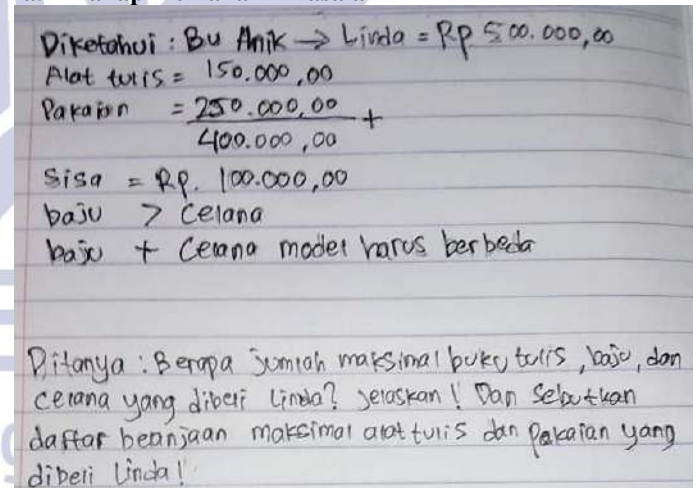 Diketahui : Bu Anik → Linda = Rp 500.000,00
Alat tulis = 150.000,00
Pakaian = 250.000,00 +
400.000,00
Sisa = Rp. 100.000,00
baju > Celana
baju + Celana model harus berbeda
Ditanya : Berapa jumlah maksimal buku tulis, baju, dan
celana yang dibeli Linda? Jelaskan! Dan Sebutkan
daftar beanjaan maksimal alat tulis dan Pakaian yang
dibeli Linda!